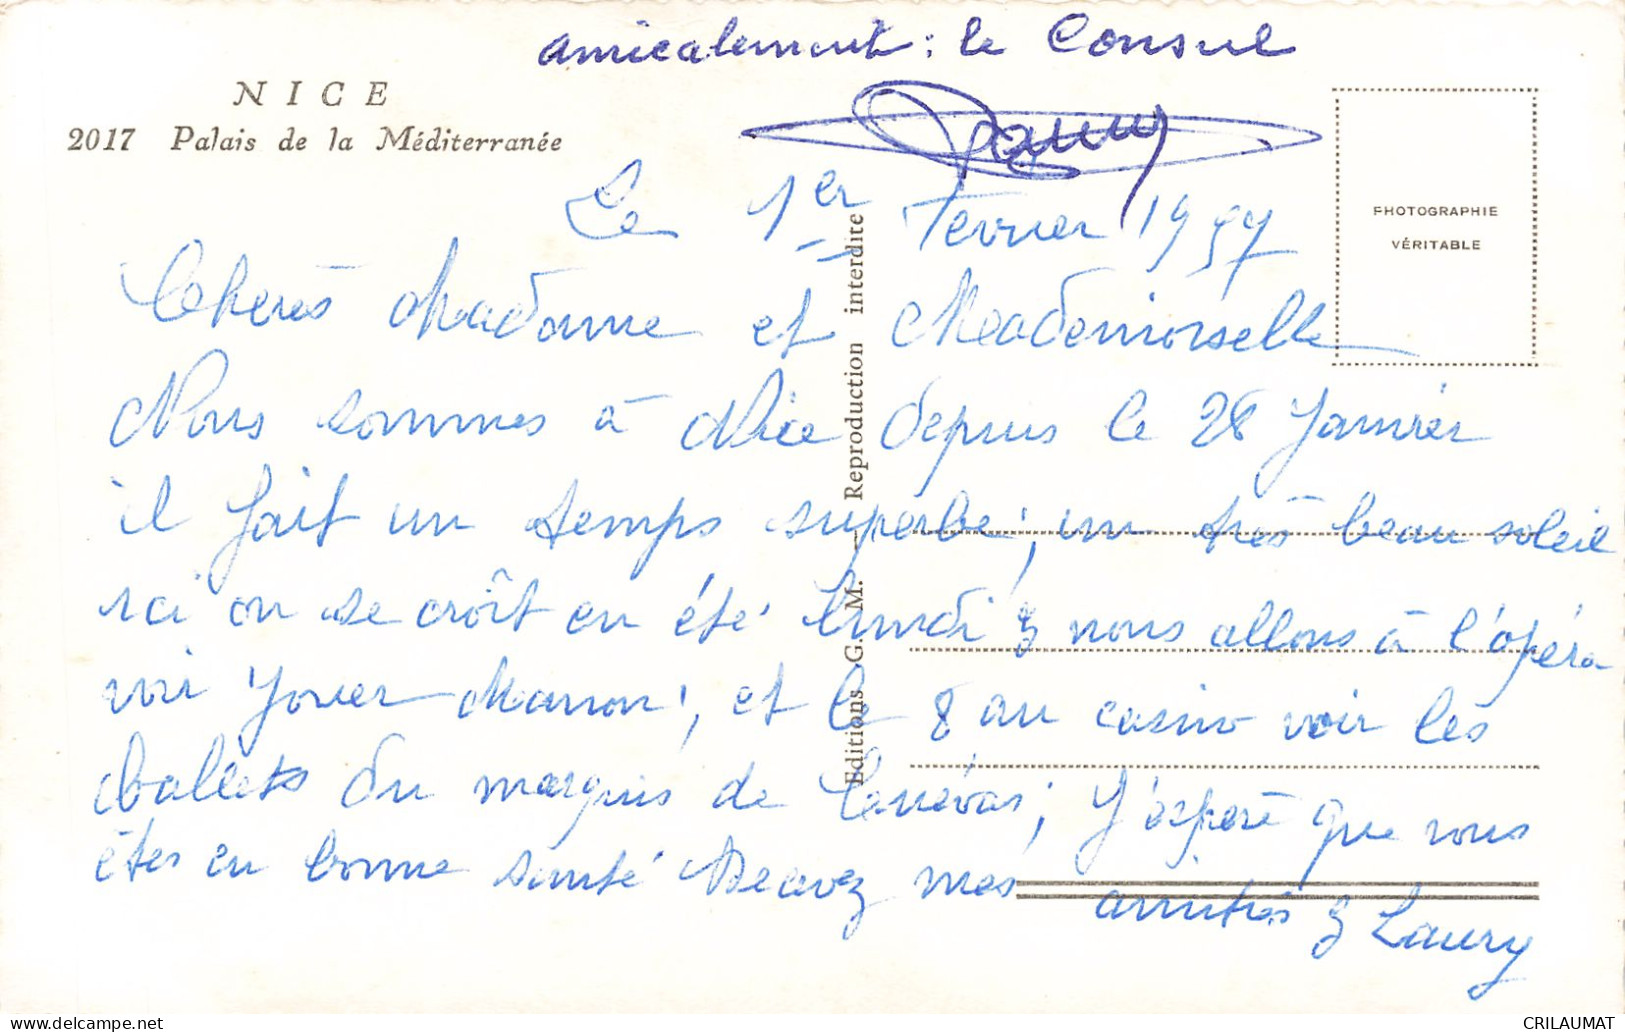 amicalement : le Consul
NICE
2017 Palais de la Méditerranée
Le 1er Fevrier 1957
PHOTOGRAPHIE
VÉRITABLE
Chères Madame et Mademoiselle
Nous sommes à Nice depuis le 28 Janvier
il fait un temps superbe ; un très beau soleil
ici on se croît en été lundi nous allons à l'opéra
voir Jouer Manon ; et le 8 au casino voir les
ballets du marquis de Cuévas ; J'espère que vous
êtes en bonne santé Recevez mes
amitiés Laury
Editions G. M. – Reproduction interdite
CRILAUMAT